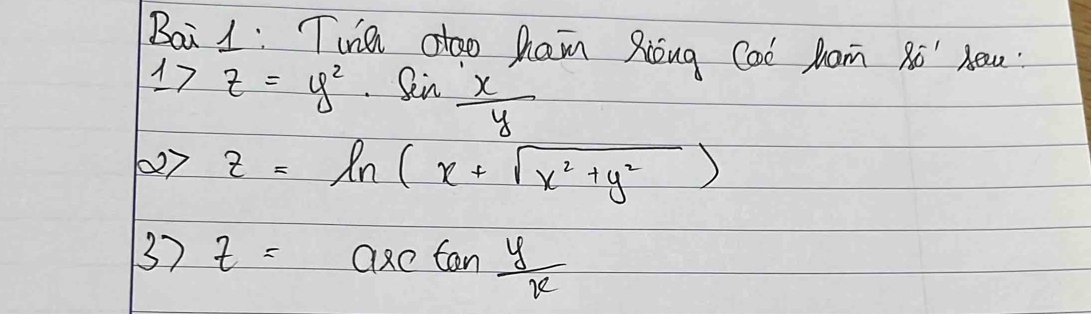 Bài 1: Tính đạo hàm riêng các hàm số sau:
1> z = y² . sin x/y
2> z = ln ( x + √(x² + y²) )
3> z = arc tan y/x